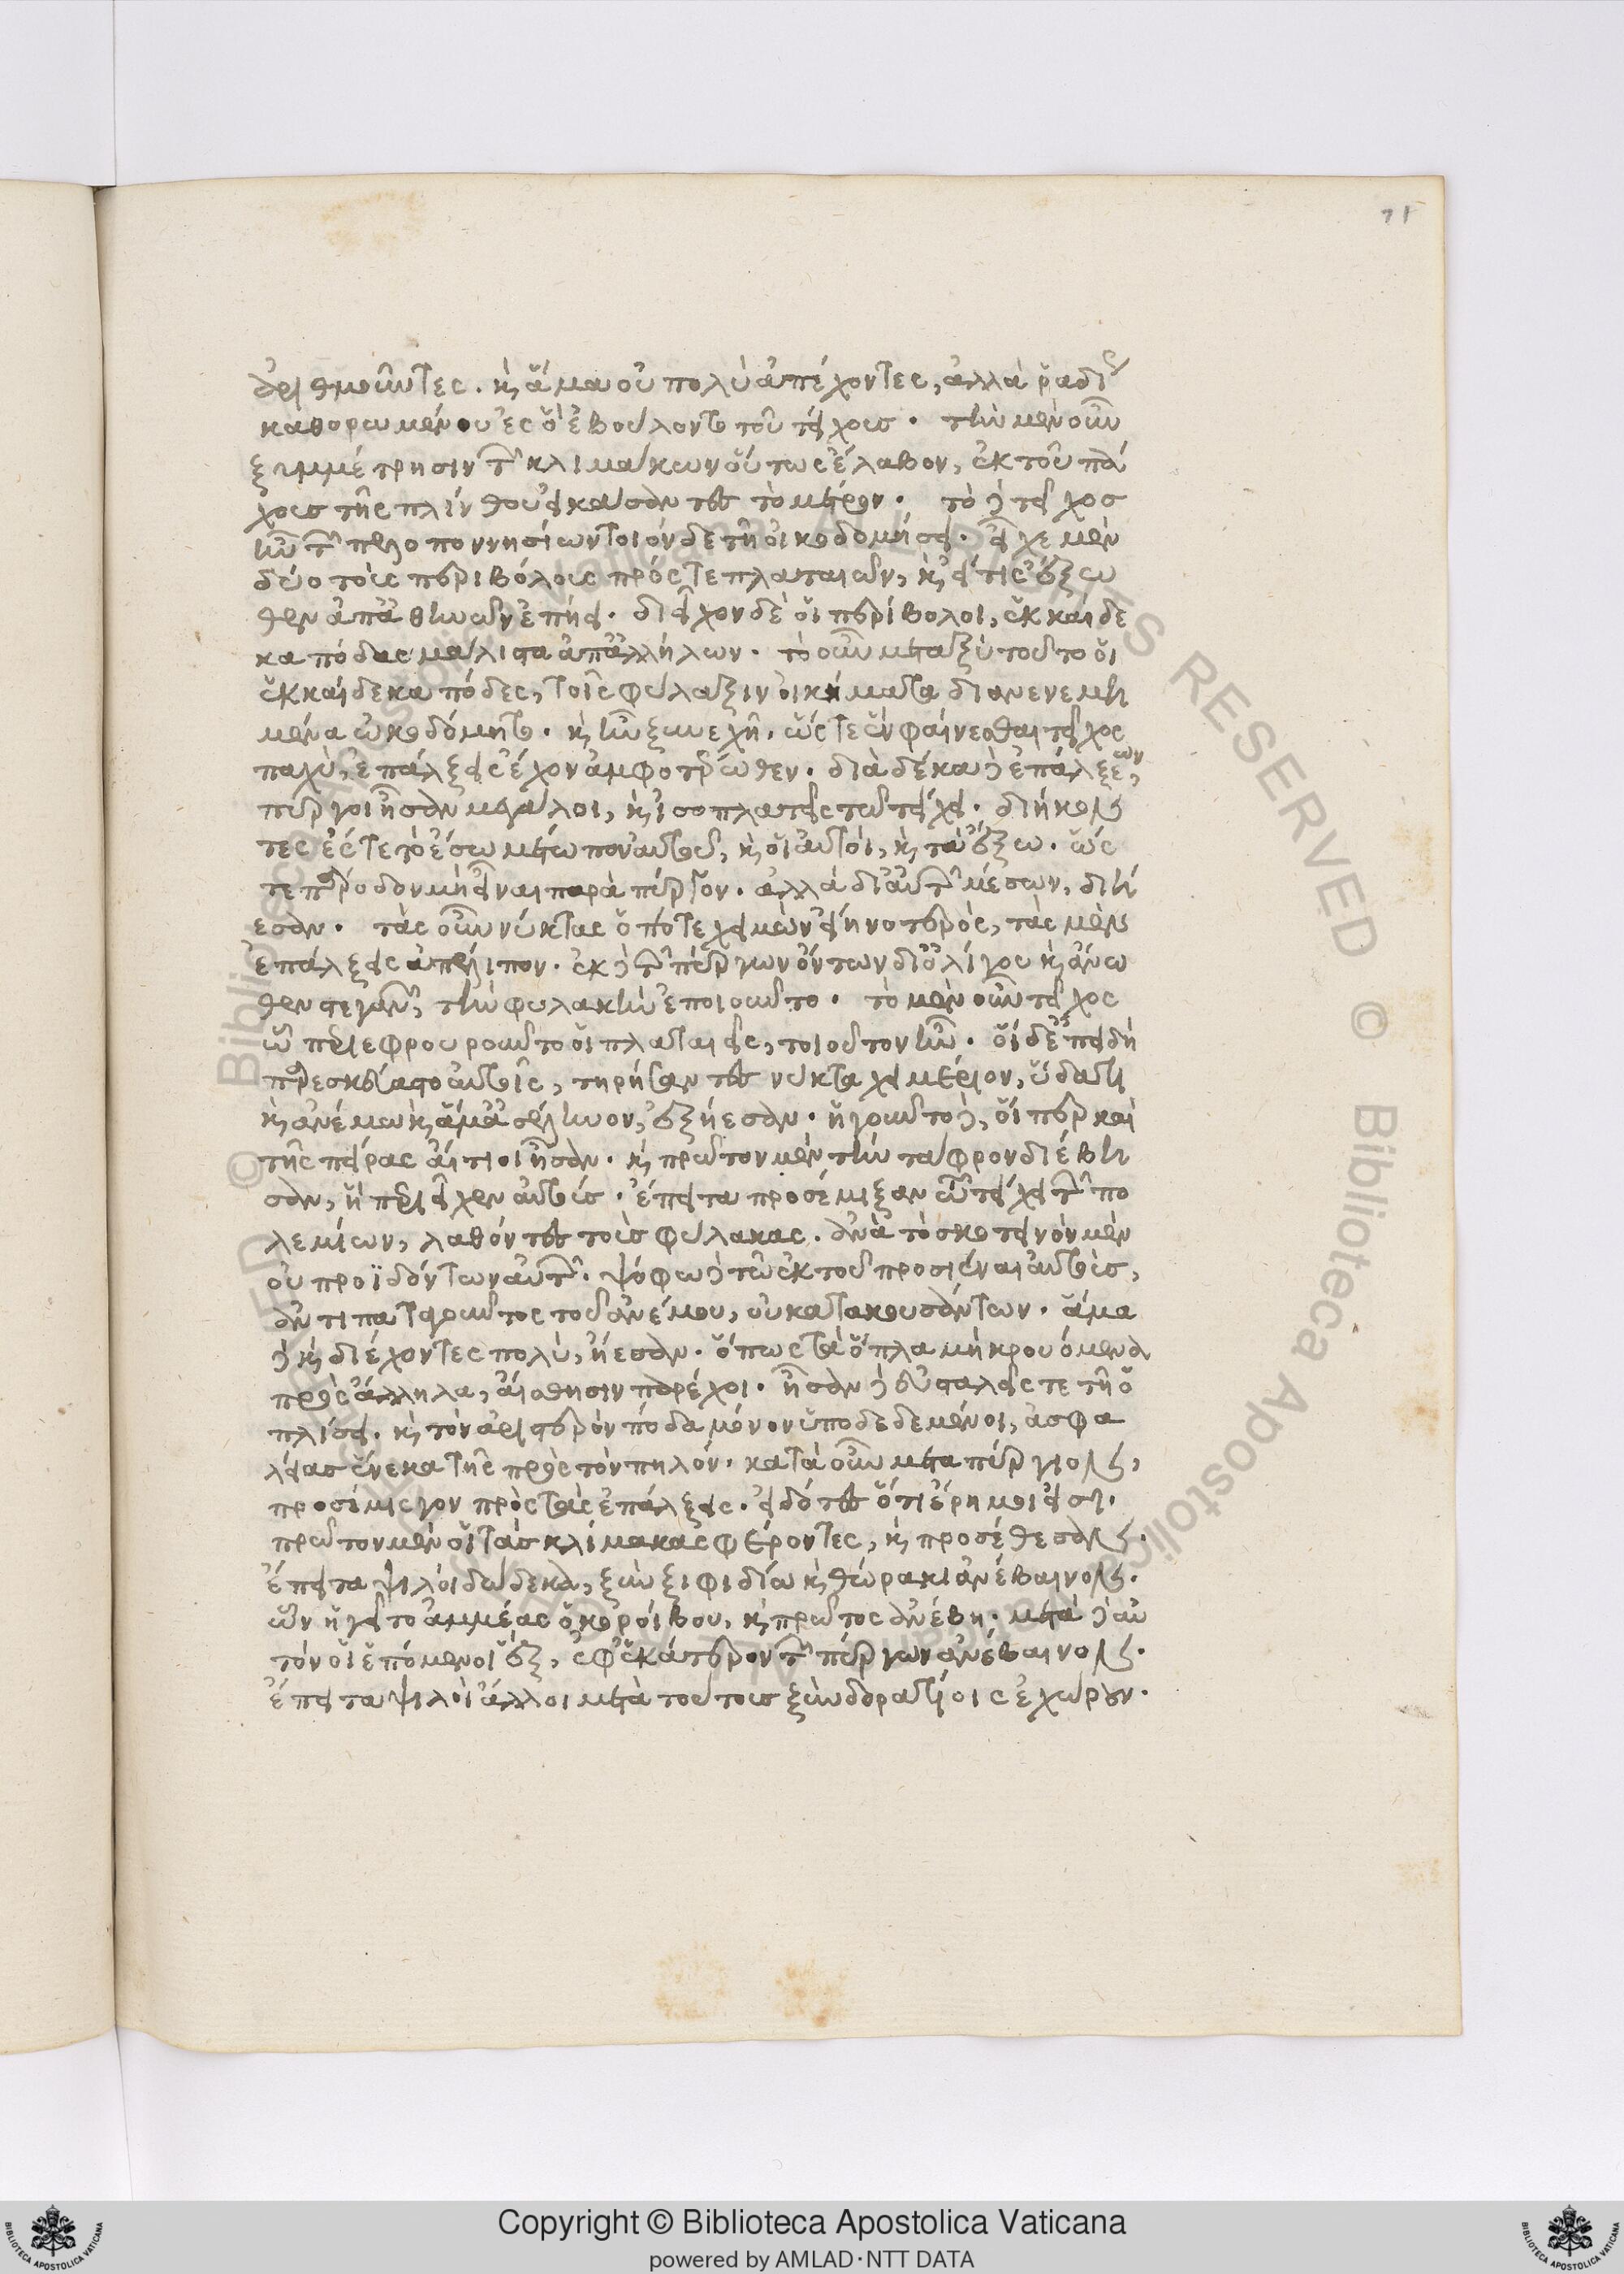 71
ἀριθμοῦντες. κ ἅμα οὐ πολὺ ἀπέχοντες, ἀλλὰ ῥαδίως
καθορωμένου ἐς ὃ ἐβούλοντο τοῦ τείχους. τὴν μὲν οὖν
ξυμμέτρησιν τῶν κλιμάκων οὕτως ἔλαβον, ἐκ τοῦ πά
χους τῆς πλίνθου εἰκάσαντες τὸ μέτρον. τὸ δὲ τεῖχος
ἦν τῶν πελοποννησίων τοιόνδε τῇ οἰκοδομήσει. εἶχε μὲν
δύο τοὺς περιβόλους πρός τε πλαταιῶν, καὶ εἴ τις ἔξω
θεν ἀπ' ἀθηνῶν ἐπήει. διεῖχον δὲ οἱ περίβολοι, ἑκκαίδε
κα πόδας μάλιστα ἀπ' ἀλλήλων. τὸ οὖν μεταξὺ τοῦτο οἱ
ἑκκαίδεκα πόδες, τοῖς φύλαξιν οἰκήματα διανενεμη
μένα ὠκοδόμητο. καὶ ἦν ξυνεχῆ. ὥςτε ἓν φαίνεσθαι τεῖχος
παχὺ, ἐπάλξεις ἔχον ἀμφοτέρωθεν. διὰ δέκα δὲ ἐπάλξεων,
πύργοι ἦσαν μεγάλοι, καὶ ἰσοπλατεῖς τῶ τείχει. διήκον
τες ἔς τε τὸ ἔσω μέτωπον αὐτοῦ, καὶ οἱ αὐτοὶ, καὶ τὸ ἔξω. ὥς
τε πάροδον μὴ εἶναι παρὰ πύργον. ἀλλὰ δι' αὐτῶν μέσων, διή
εσαν. τὰς οὖν νύκτας ὁπότε χειμὼν εἴη νοτερὸς, τὰς μὲν
ἐπάλξεις ἀπέλιπον. ἐκ δὲ τῶν πύργων ὄντων δι' ὀλίγου καὶ ἄνω
θεν στεγανῶν, τὴν φυλακὴν ἐποιοῦντο. τὸ μὲν οὖν τεῖχος
ὧ περιεφρουροῦντο οἱ πλαταιεῖς, τοιοῦτον ἦν. οἱ δ' ἐπειδὴ
παρεσκεύαστο αὐτοῖς, τηρήσαντες νύκτα χειμέριον, ὕδατι
καὶ ἀνέμω καὶ ἅμ' ἀσέληνον, ἐξήεσαν. ἡγοῦντο δὲ, οἵπερ καὶ
τῆς πείρας αἴτιοι ἦσαν. καὶ πρῶτον μὲν τὴν τάφρον διέβη
σαν, ἣ περιεῖχεν αὐτούς. ἔπειτα προσέμιξαν τῶ τείχει τῶν πο
λεμίων, λαθόντες τοὺς φύλακας. ἀνὰ τὸ σκοτεινὸν μὲν
οὐ προϊδόντων αὐτῶν. ψόφω δὲ τῶ ἐκ τοῦ προσιέναι αὐτοὺς,
ἀντιπαταγοῦντος τοῦ ἀνέμου, οὐ κατακουσάντων. ἅμα
δὲ καὶ διέχοντες πολὺ, ἤεσαν. ὅπως τὰ ὅπλα μὴ κρουόμενα
πρὸς ἄλληλα, αἴσθησιν παρέχοι. ἦσαν δὲ εὐσταλεῖς τε τῇ ὁ
πλίσει. καὶ τὸν ἀριστερὸν πόδα μόνον ὑποδεδεμένοι, ἀσφα
λείας ἕνεκα τῆς πρὸς τὸν πηλόν. κατὰ οὖν μεταπύργιον,
προσέμισγον πρὸς τὰς ἐπάλξεις. εἰδότες ὅτι ἔρημοί εἰσι.
πρῶτον μὲν οἱ τὰς κλίμακας φέροντες, καὶ προσέθεσαν.
ἔπειτα ψιλοὶ δώδεκα, ξὺν ξιφιδίω καὶ θώρακι ἀνέβαινον.
ὧν ἡγεῖτο ἀμμέας ὁ κοροίβου, καὶ πρῶτος ἀνέβη. μετὰ δὲ αὐ
τὸν οἱ ἑπόμενοι ἓξ, ἐφ' ἑκάτερον τῶν πύργων ἀνέβαινον.
ἔπειτα ψιλοὶ ἄλλοι μετὰ τούτους ξὺν δορατίοις ἐχώρουν.
© Biblioteca Apostolica Vaticana. ALL RIGHTS RESERVED
Copyright © Biblioteca Apostolica Vaticana
powered by AMLAD·NTT DATA